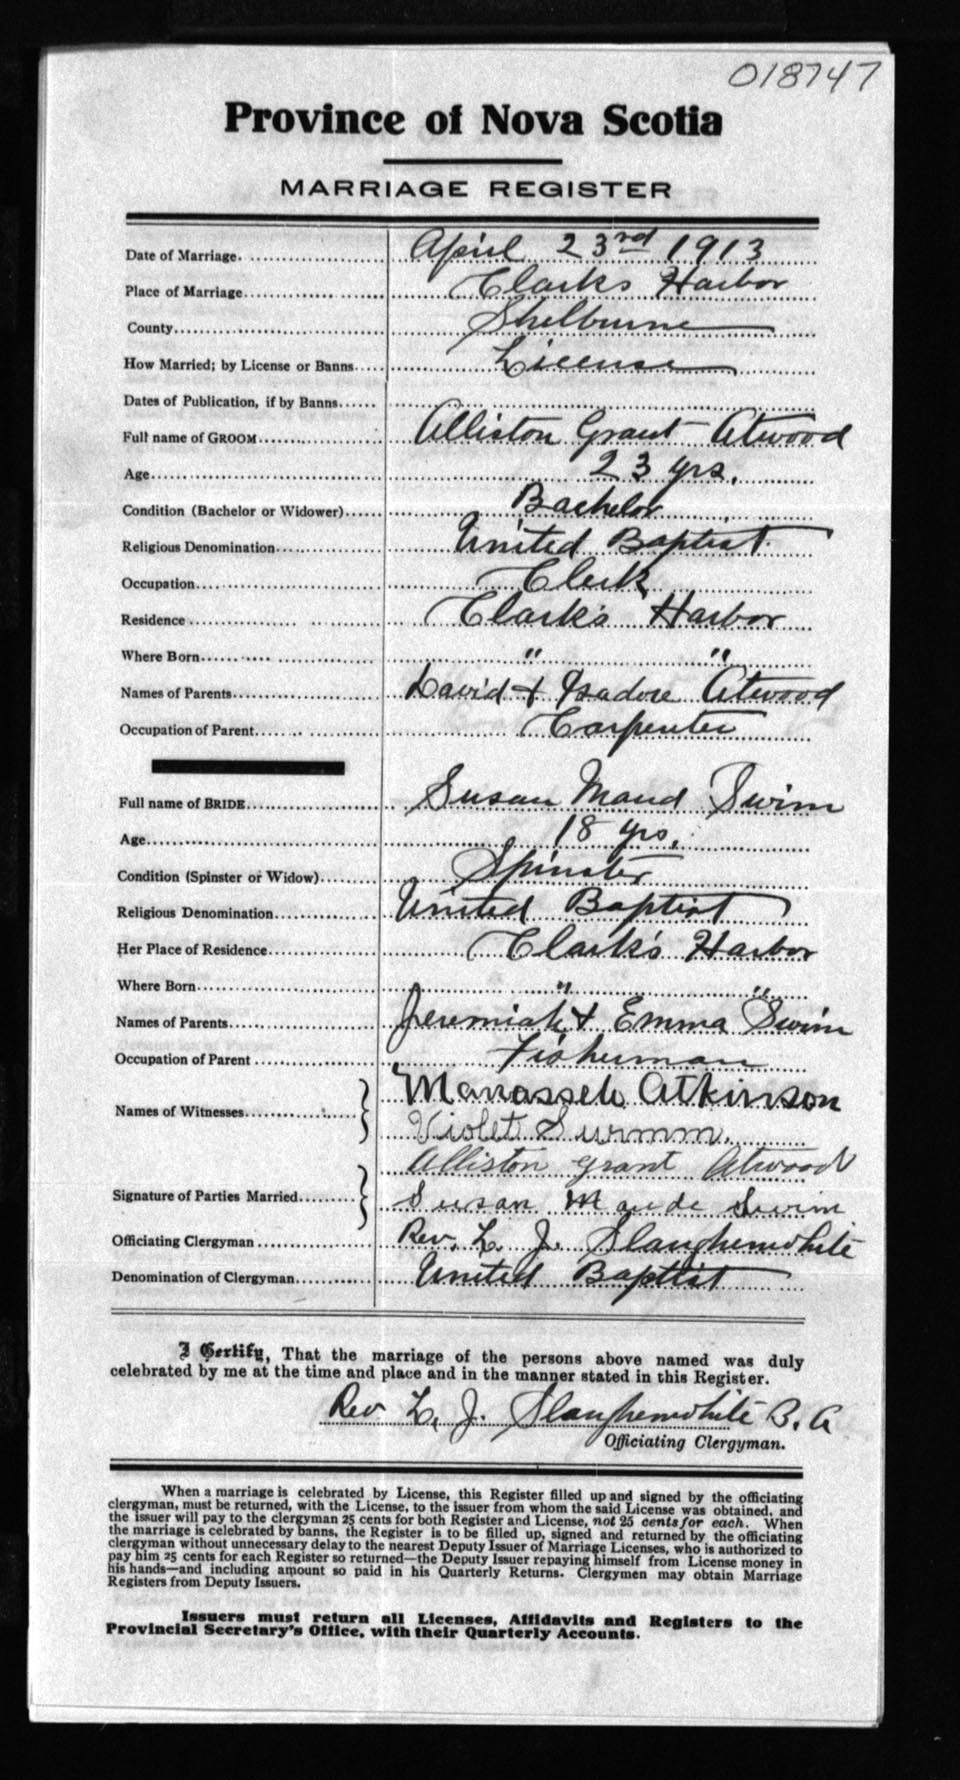 018747
Province of Nova Scotia
MARRIAGE REGISTER
Date of Marriage. April 23rd 1913
Place of Marriage Clarks Harbor
County Shelburne
How Married; by License or Banns License
Dates of Publication, if by Banns
Full name of GROOM Alliston Grant Atwood
Age 23 yrs.
Condition (Bachelor or Widower) Bachelor
Religious Denomination United Baptist
Occupation Clerk
Residence Clark's Harbor
Where Born " "
Names of Parents David & Isadore Atwood
Occupation of Parent Carpenter
Full name of BRIDE Susan Maud Swim
Age 18 yrs.
Condition (Spinster or Widow) Spinster
Religious Denomination United Baptist
Her Place of Residence Clark's Harbor
Where Born " "
Names of Parents Jeremiah & Emma Swim
Occupation of Parent Fisherman
Names of Witnesses } Manasseh Atkinson
Violet
Signature of Parties Married } Alliston Grant Atwood
Susan Maude Swim
Officiating Clergyman Rev. L. J. Slaughenwhite
Denomination of Clergyman United Baptist
I Certify, That the marriage of the persons above named was duly
celebrated by me at the time and place and in the manner stated in this Register.
Rev L. J. Slaughenwhite B. A
Officiating Clergyman.
When a marriage is celebrated by License, this Register filled up and signed by the officiating
clergyman, must be returned, with the License, to the issuer from whom the said License was obtained, and
the issuer will pay to the clergyman 25 cents for both Register and License, not 25 cents for each. When
the marriage is celebrated by banns, the Register is to be filled up, signed and returned by the officiating
clergyman without unnecessary delay to the nearest Deputy Issuer of Marriage Licenses, who is authorized to
pay him 25 cents for each Register so returned—the Deputy Issuer repaying himself from License money in
his hands—and including amount so paid in his Quarterly Returns. Clergymen may obtain Marriage
Registers from Deputy Issuers.
Issuers must return all Licenses, Affidavits and Registers to the
Provincial Secretary's Office, with their Quarterly Accounts.